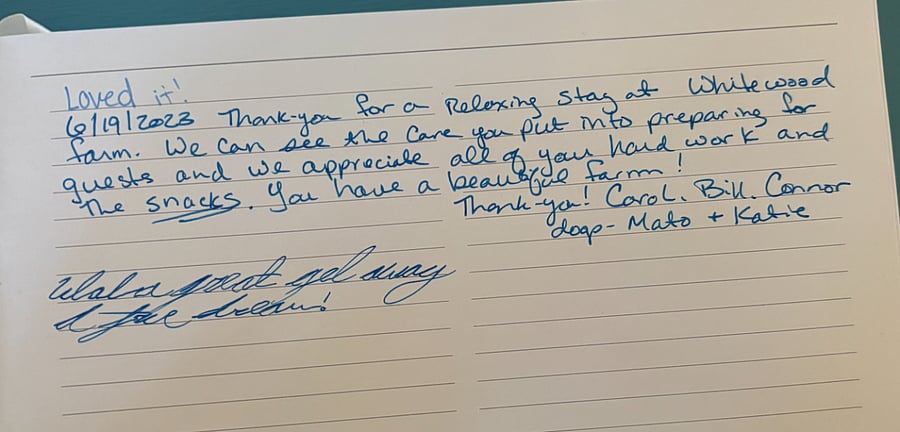 Loved it!
6/19/2023 Thank-you for a Relaxing stay at Whitewood
farm. We can see the care you put into preparing for
guests and we appreciate all of your hard work and
the snacks. You have a beautiful farm!
Thank-you! Carol, Bill, Connor
dogs- Mato + Katie
What a great get away
dream!